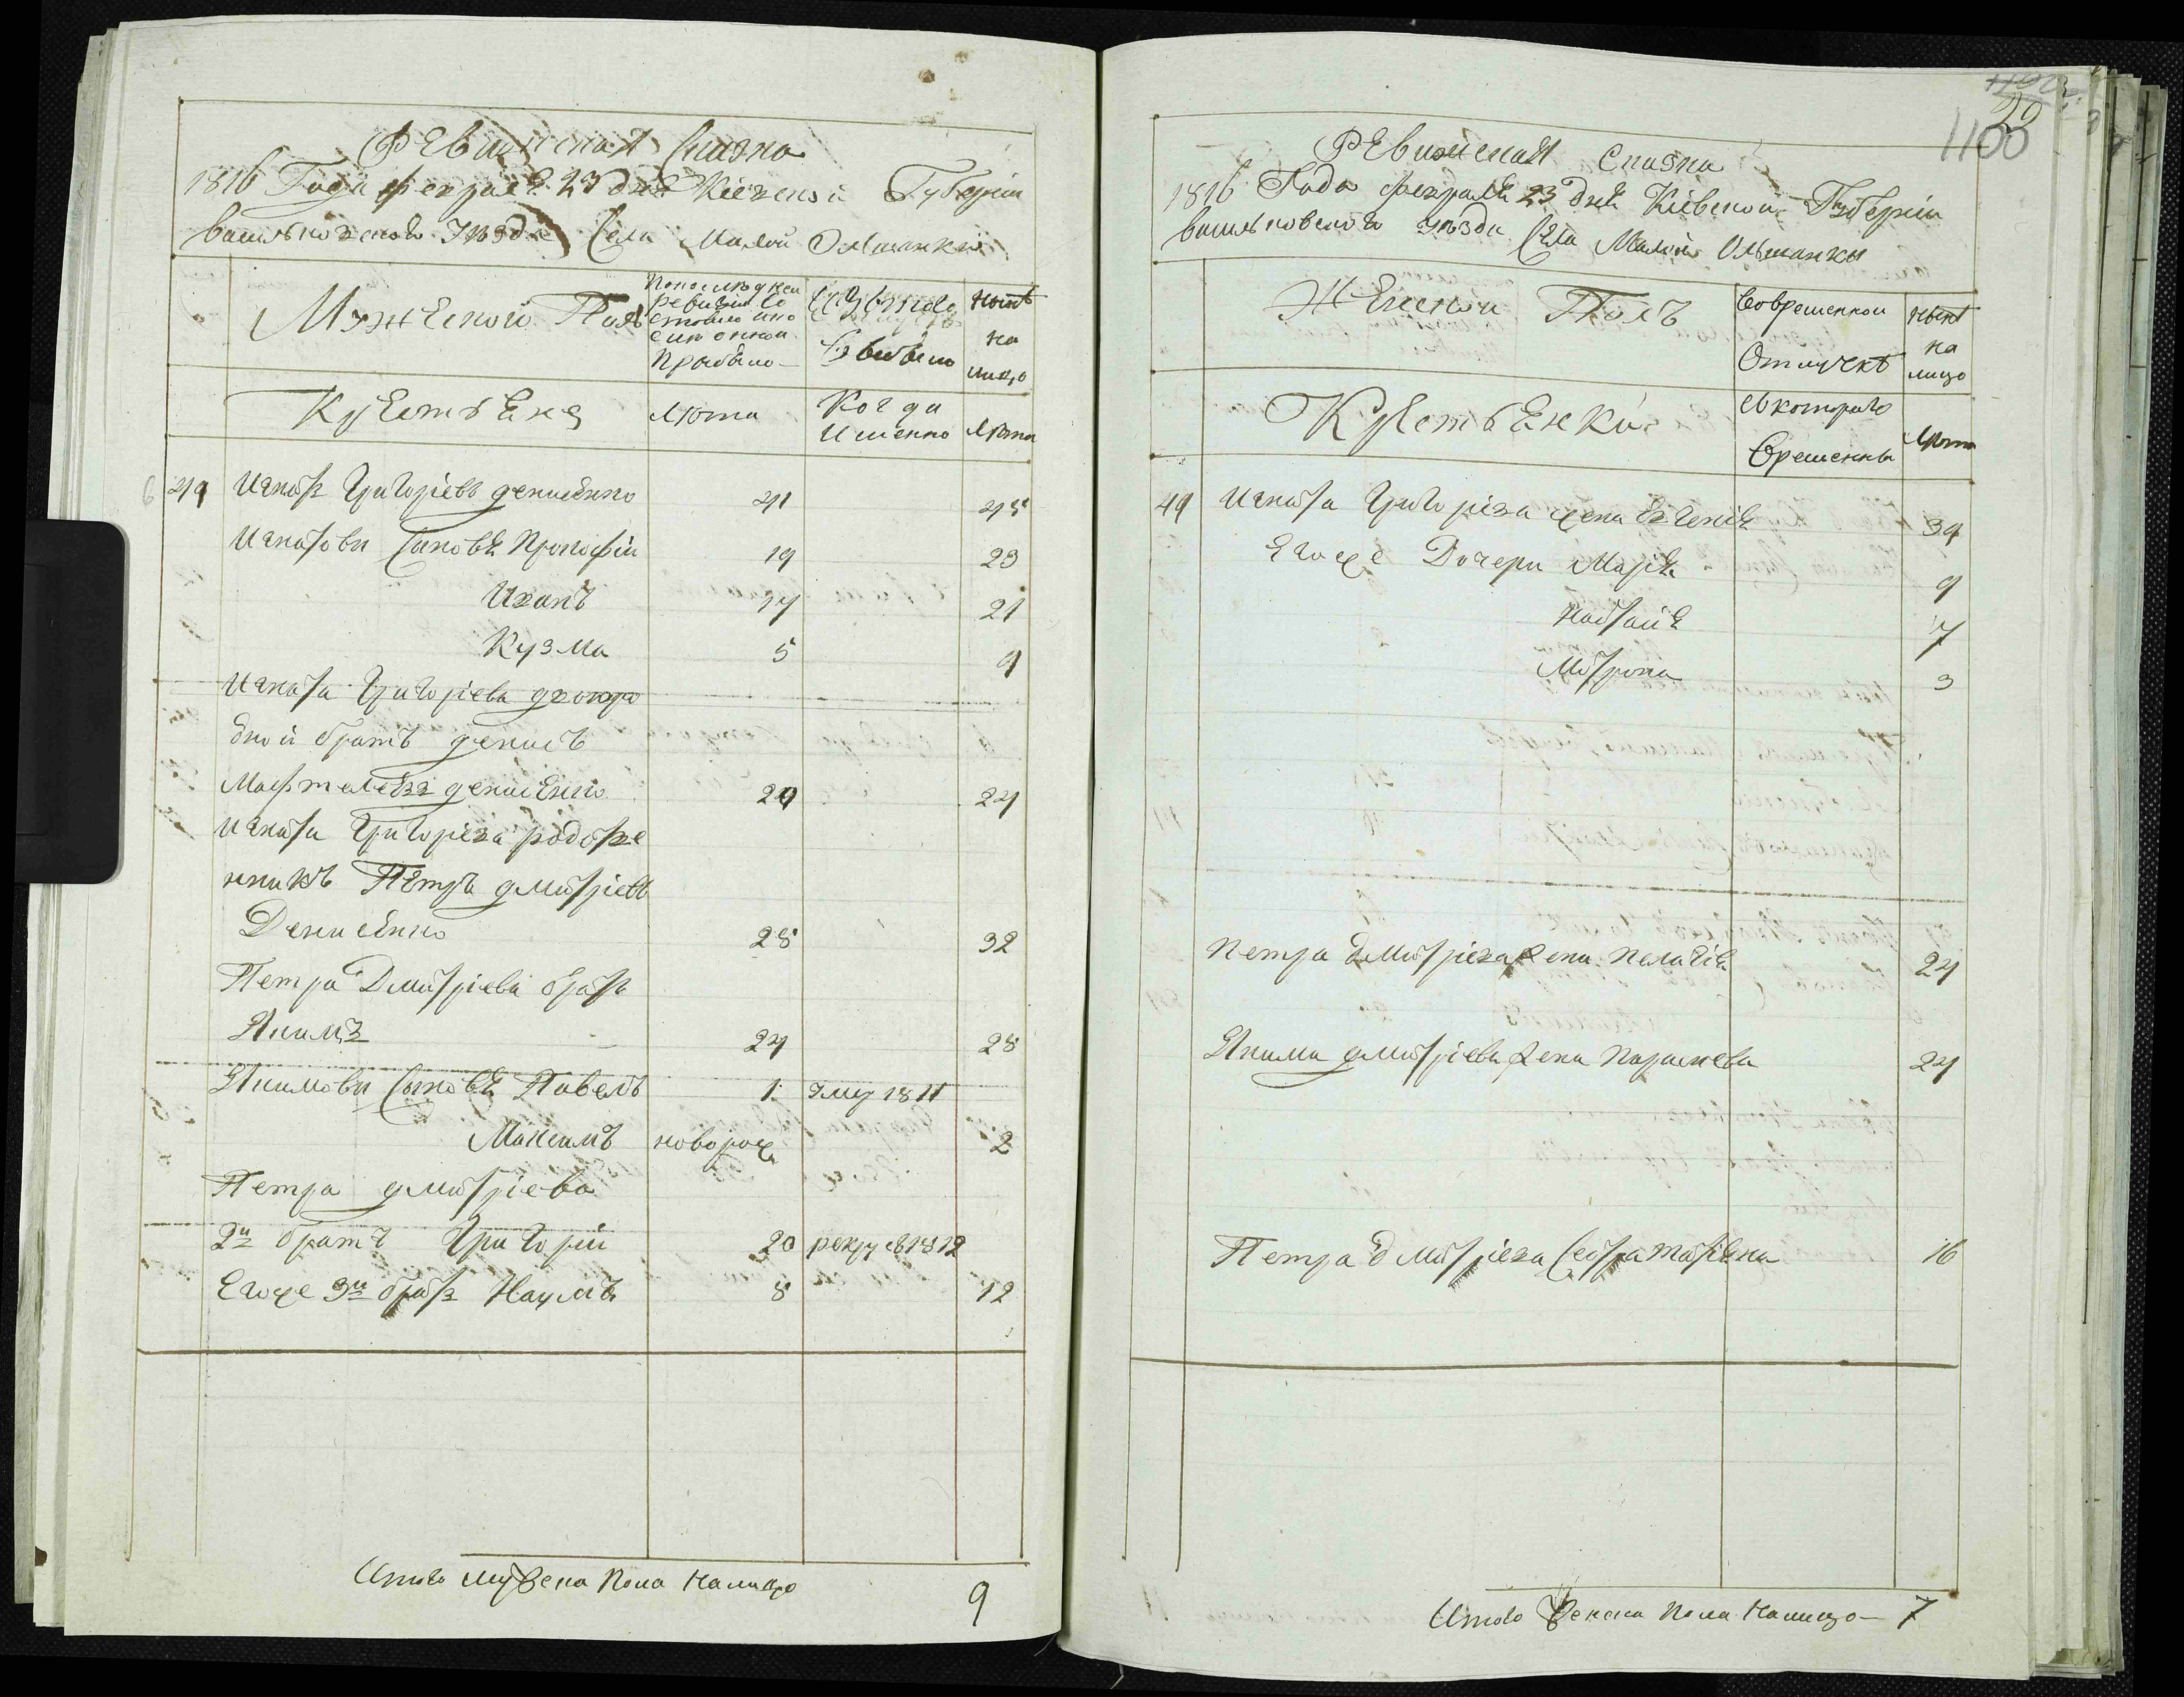 Ревизская Сказка
1816 Года февраля 23 дня Кіевской Губерніи
васильковского уезда Села Малой Ольшанки
Мужеской Полъ
По последней
ревизіи со
стояло и по
сле оной
Прибыло
Изъ того
Выбыло
Ныне
на
лицо
Крестьяне
Лѣта
Когда
Именно
Лѣта
49 Игнатъ Григоріевъ денисенко 41 45
Игнатови Синовя Прокофій 19 23
Иванъ 17 21
Кузма 5 9
Игната Григоріева двоюро
дной братъ денисъ
денисенко 20 24
Игната Григоріева родстве
нникъ Петръ дмитріевъ
Денисенко 28 32
Петра Дмитріева братъ
Якимъ 24 28
Якимови Сыновя Павелъ 1 умер 1811
Максимъ новорож 2
Петра дмитріева
2й братъ Григорій 20 рекру в 1812
Егоже 3й братъ Наумъ 8 12
Итого мужеска пола налицо 9
1100
Ревизская Сказка
1816 Года февраля 23 дня Кіевской Губерніи
васильковского уезда Села Малой Ольшанки
Женской Полъ
Во временной
Отлучкѣ
Ныне
на
лицо
Крестьянки
Съ которого
Времены
Лѣта
49 Игната Григоріева жена Евгенія 34
Егоже Дочери Марія 9
Наталія 7
Мотрона 3
Петра дмитріева жена Пелагія 24
Якима дмитріева жена Параскева 24
Петра дмитріева Сестра Татіяна 16
Итого женска пола налицо 7